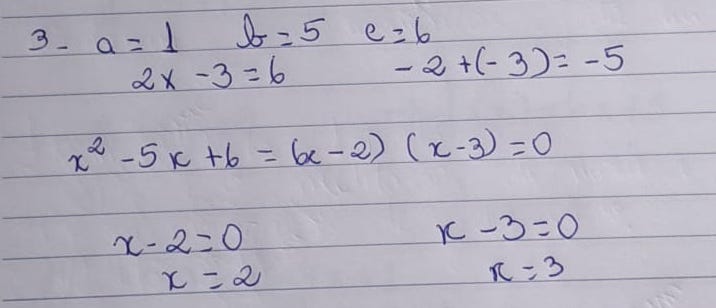 3- a = 1 b = 5 c = 6
2x -3 = 6 -2 + (-3) = -5
x² - 5x + 6 = (x - 2) (x - 3) = 0
x - 2 = 0 x - 3 = 0
x = 2 x = 3